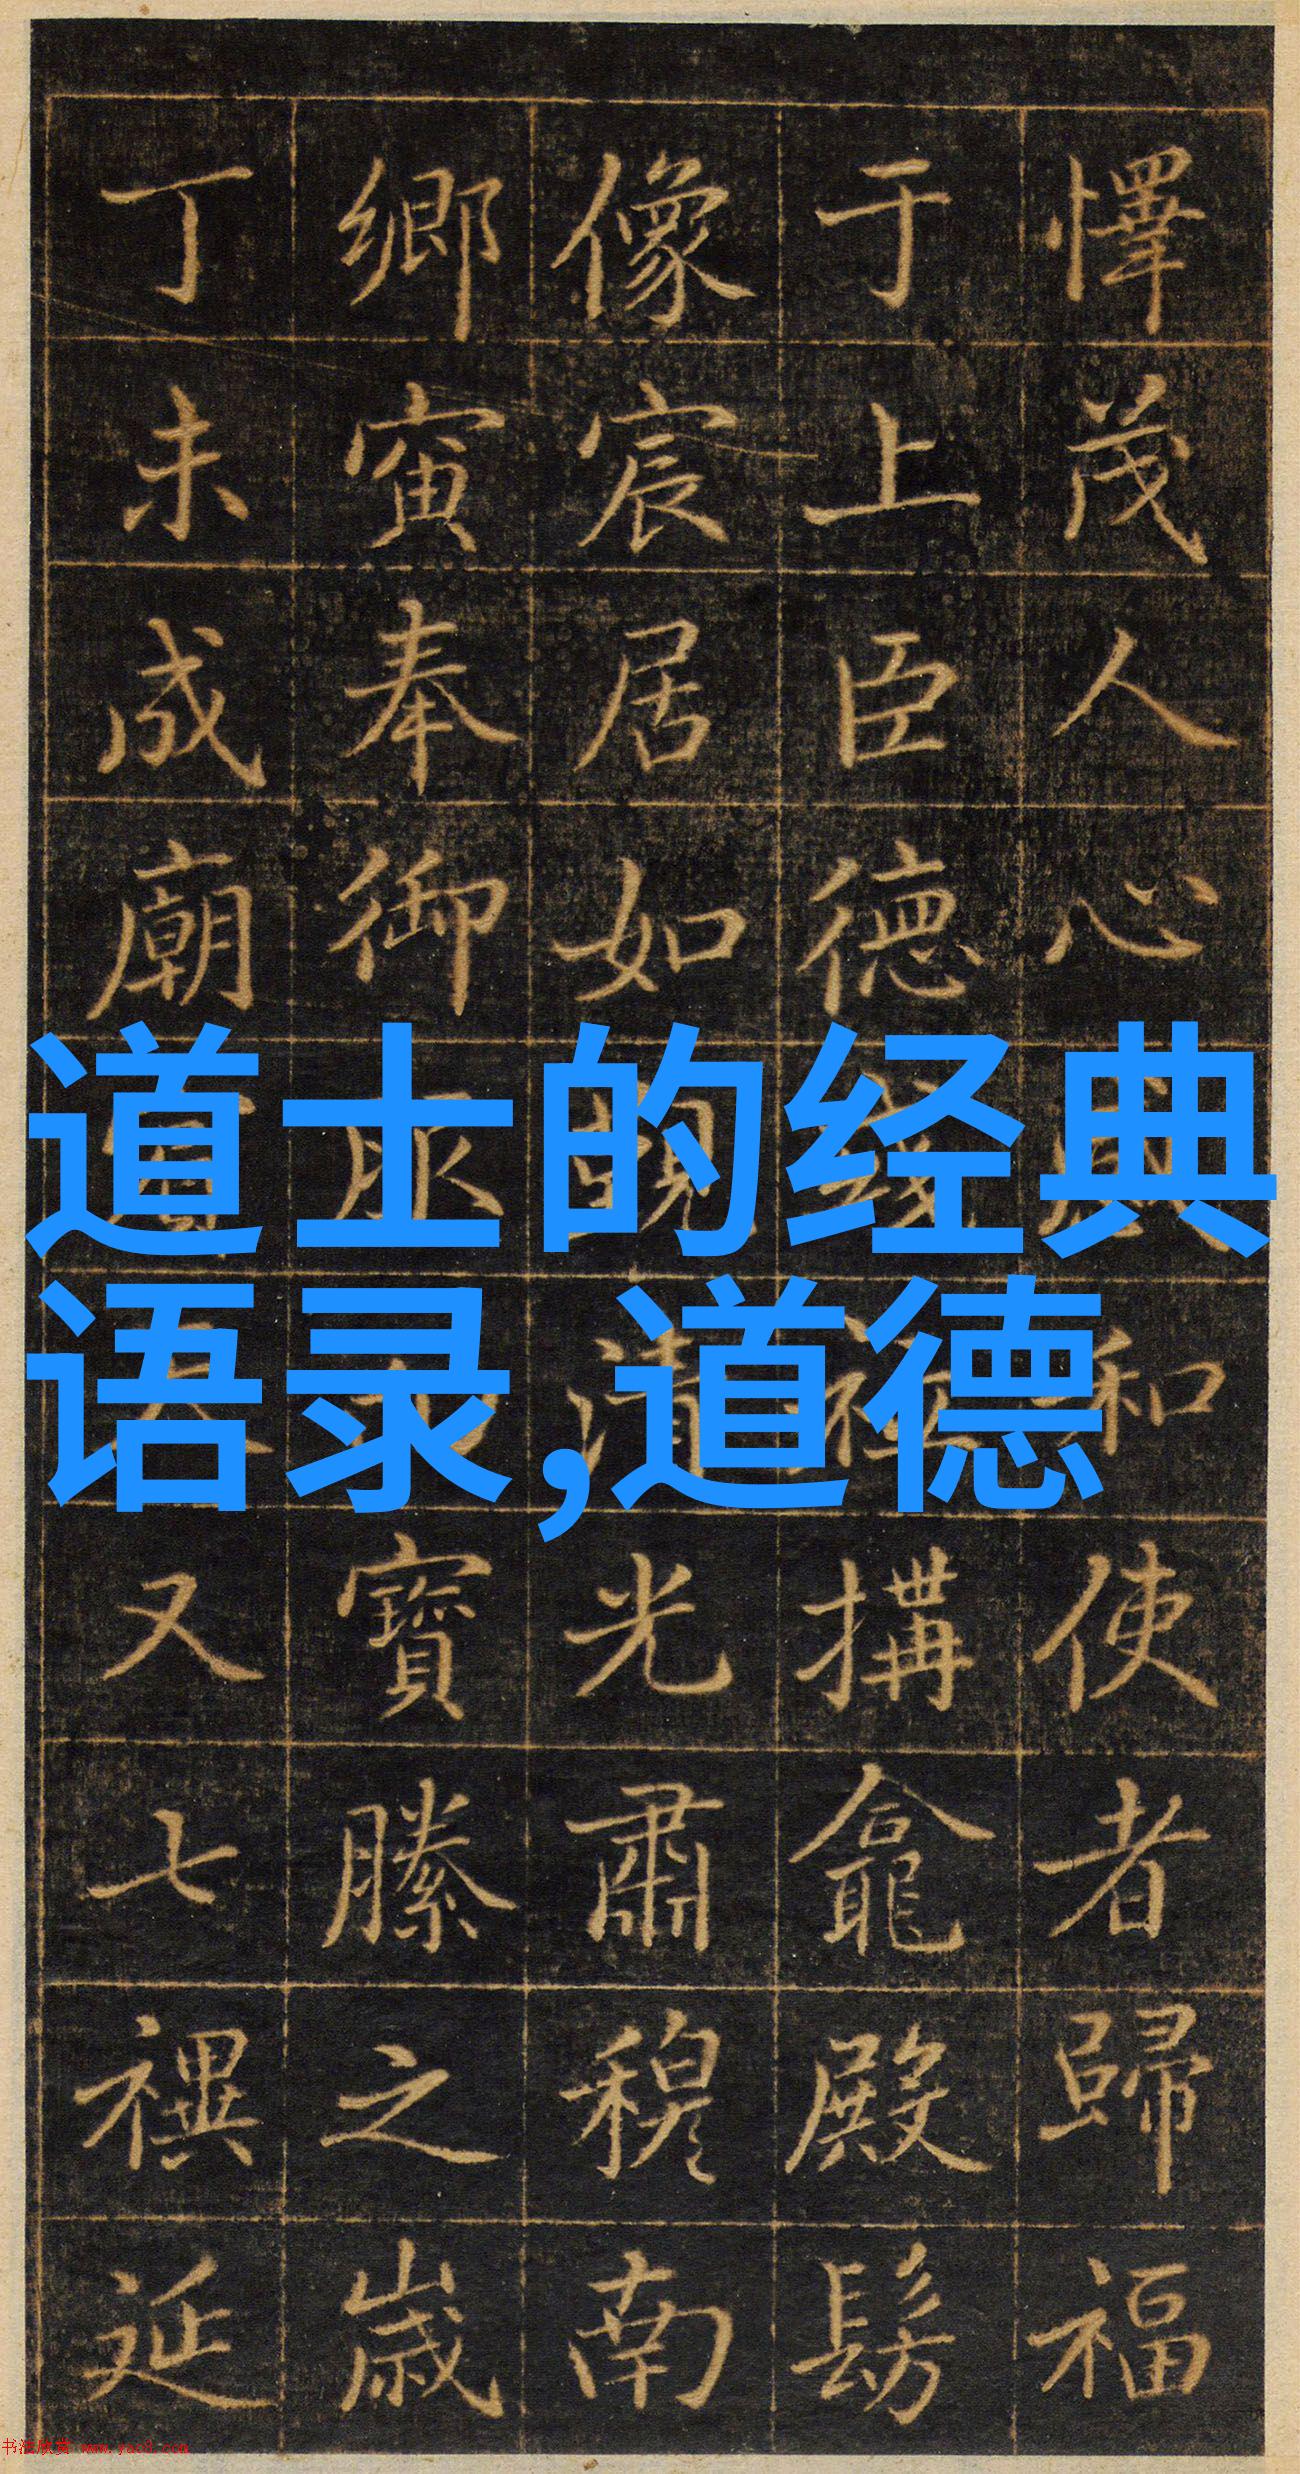 懌茂人心和使者歸福
于上臣德搆龕殿髣
像宸居如覩清光肅穆南
鄉寅奉御寶縢之歲
丁未成廟又七禩延
道士的经典
语录,道德
书法欣赏 www.yac8.com